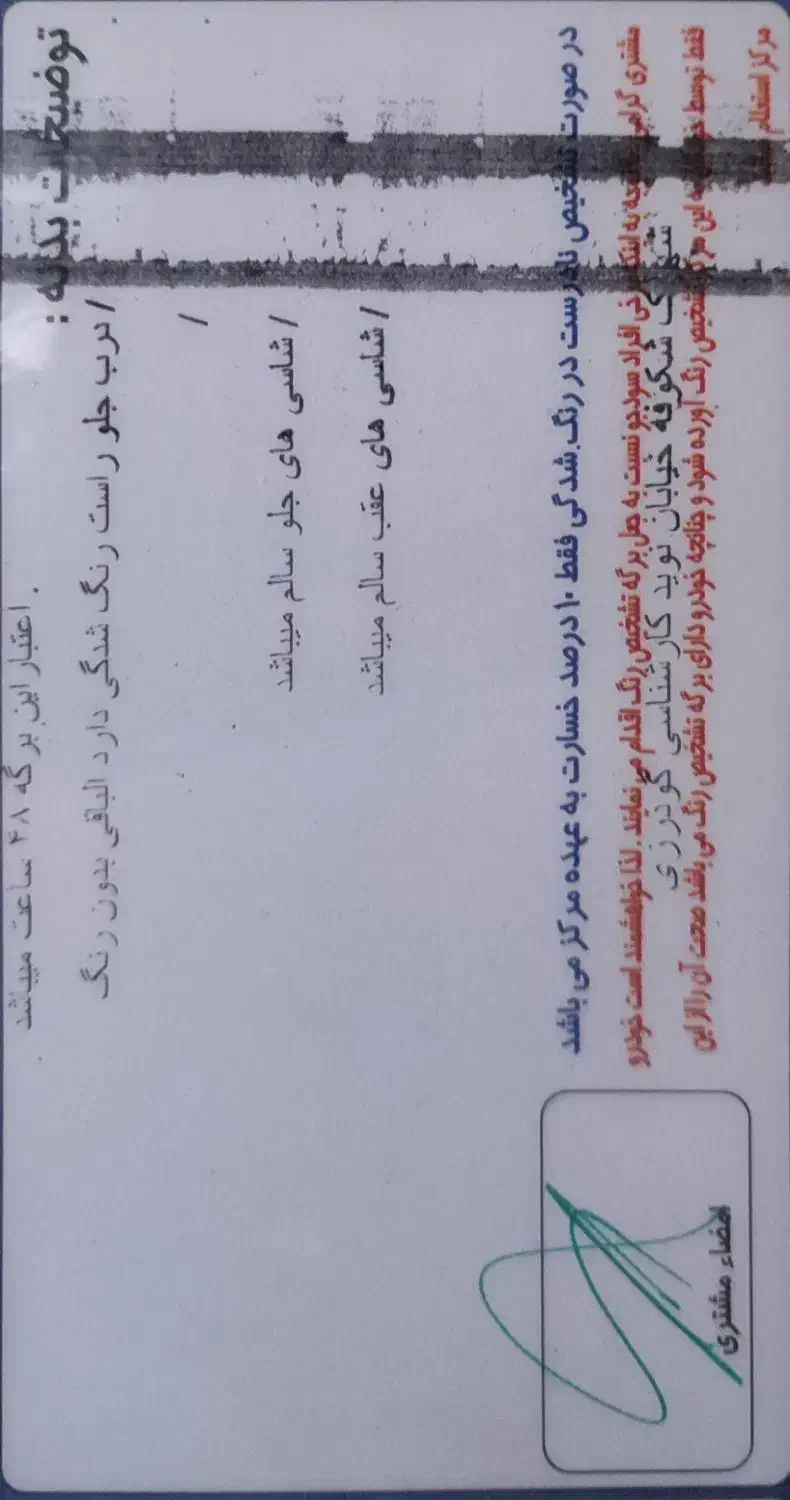 توضیحات بدنه :
. اعتبار این برگه ۴۸ ساعت میباشد
/ درب جلو راست رنگ شدگی دارد الباقی بدون رنگ
/
/ شاسی های جلو سالم میباشد
/ شاسی های عقب سالم میباشد
در صورت تشخیص نادرست در رنگ شدگی فقط ۱۰ درصد خسارت به عهده مرکز می باشد
مشتری گرامی به اینکه برخی افراد سودجو نسبت به جعل برگه تشخیص رنگ اقدام می نمایند. لذا خواهشمند است خودرو
شهرک شکوفه خیابان نوید کارشناسی گودرزی
فقط توسط به این مرکز تشخیص رنگ آورده شود و چنانچه خودرو دارای برگه تشخیص رنگ می باشد صحت آن را از این
مرکز استعلام
امضاء مشتری